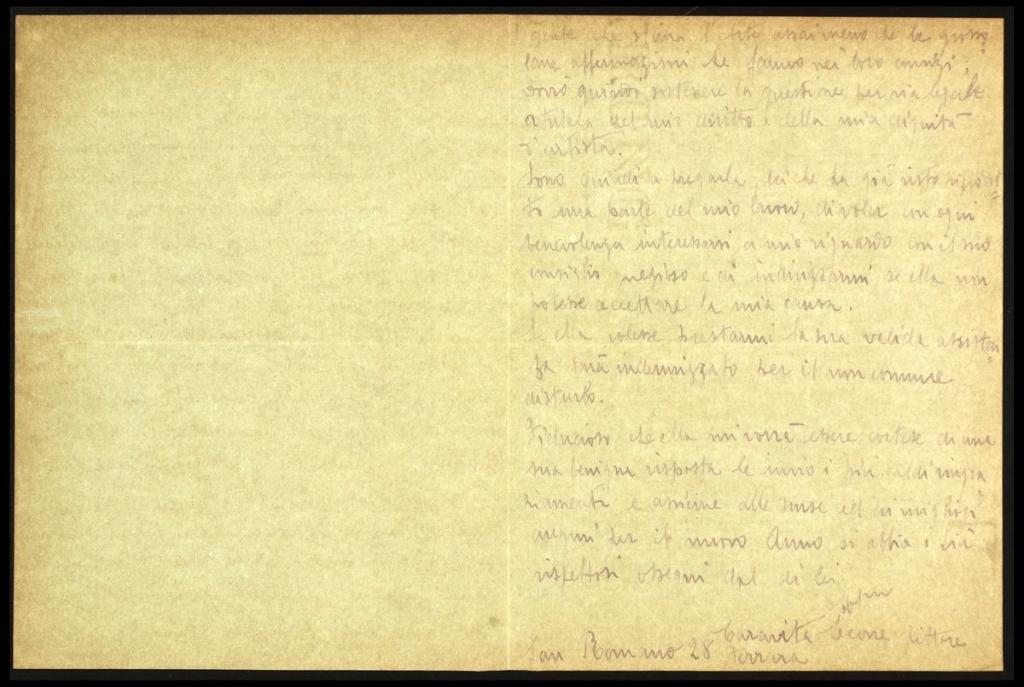 gente che stima l'arte assai meno che le grosso
lane affermazioni che fanno nei loro comizi;
dovrò quindi sostenere la questione per via legale
a tutela del mio diritto e della mia dignità
d'artista.
Sono quindi a pregarla, lei che ha già visto
una parte del mio lavoro, di voler con ogni
benevolenza interessarsi a mio riguardo con il suo
consiglio e di indirizzarmi se ella non
potesse accettare la mia causa.
Se ella volesse prestarmi la sua valida assisten
za sarà indennizzato per il non comune
disturbo.
Fiducioso che ella mi vorrà essere cortese di una
sua benigna risposta le invio i più caldi ringra
ziamenti e assieme alle scuse ed ai migliori
auguri per il nuovo Anno si abbia i più
rispettosi ossequi dal di lei
Caravita Leone pittore
San Romano 28 Ferrara